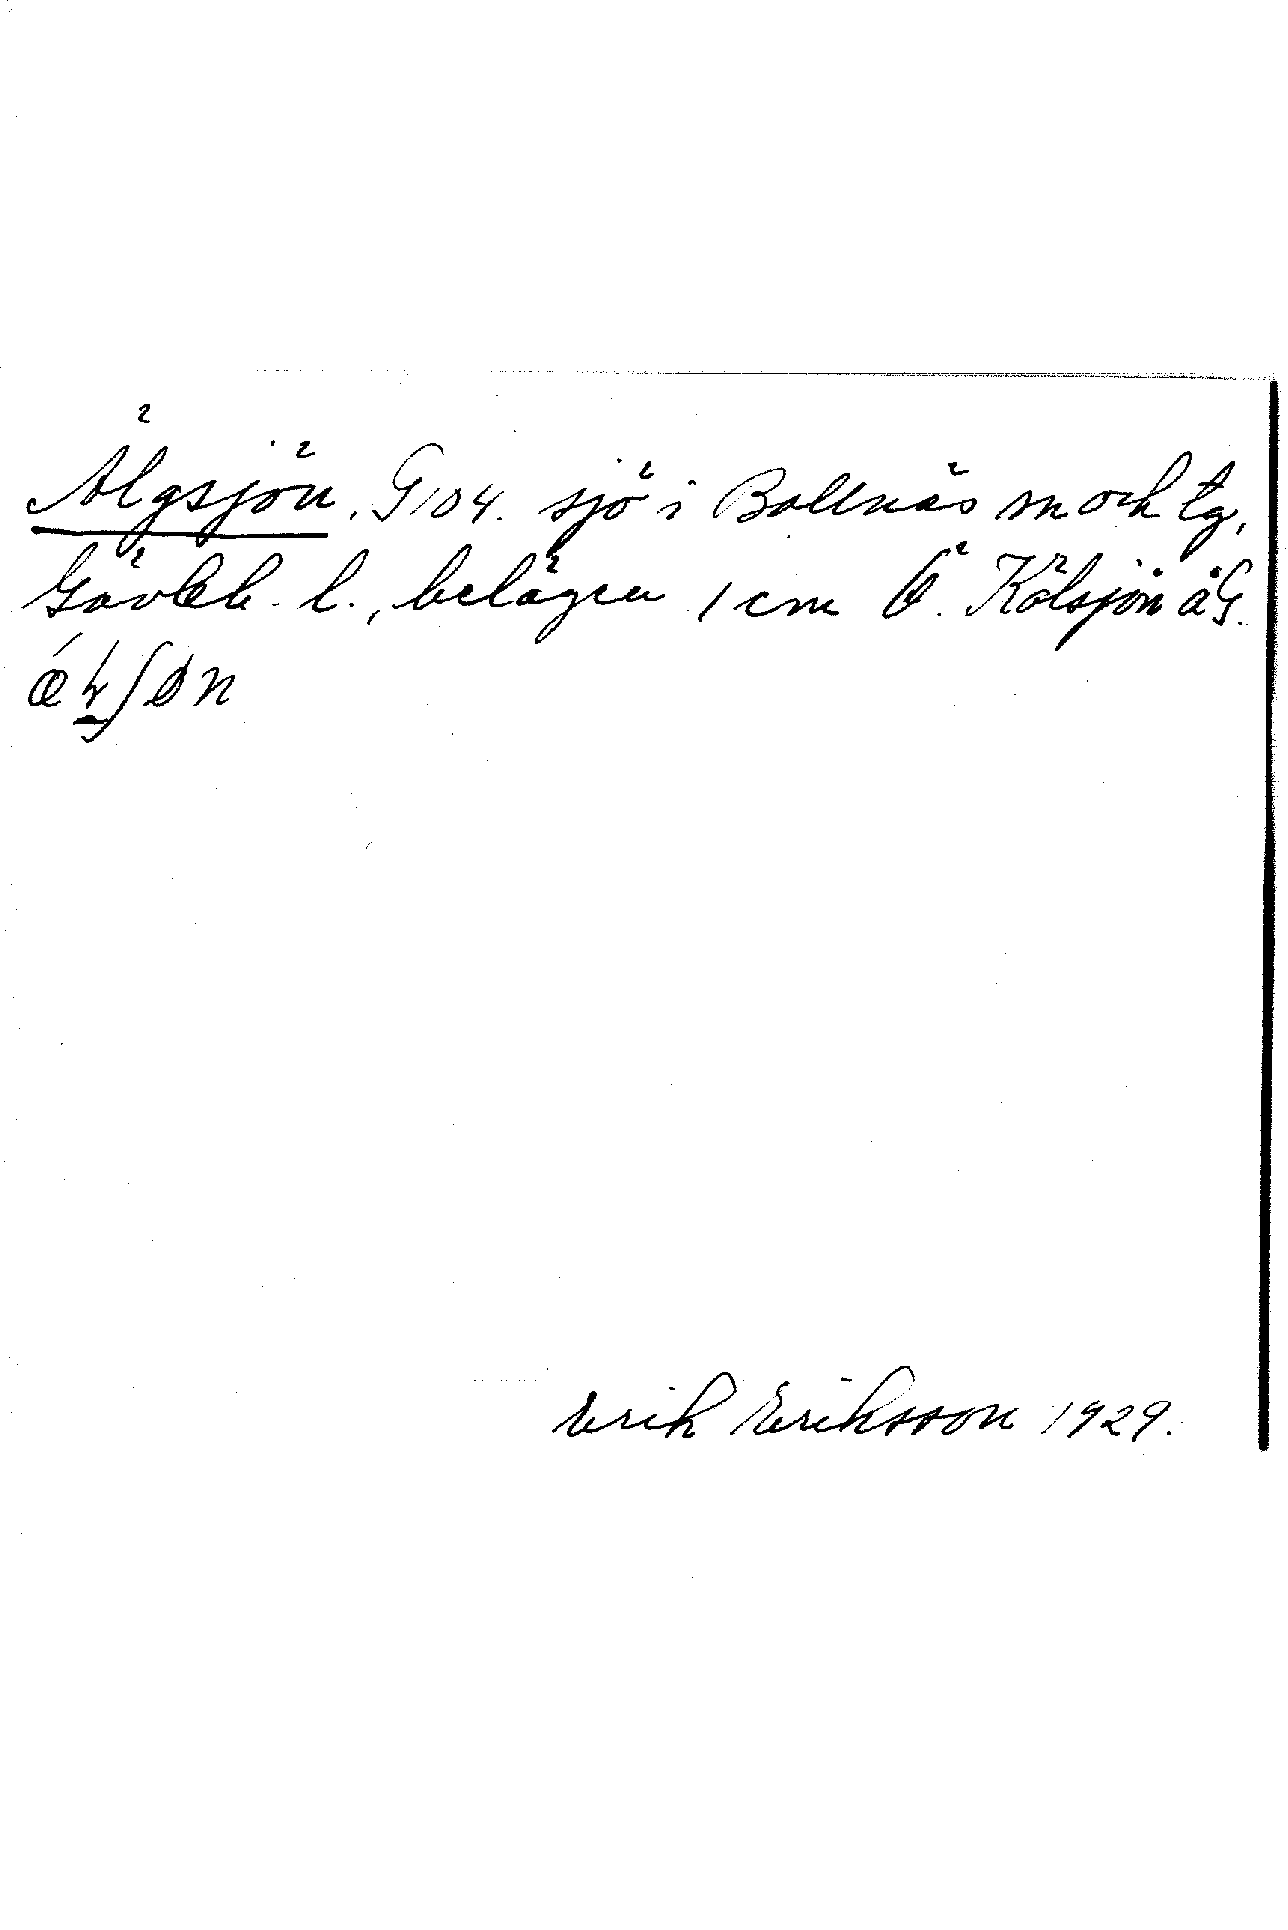 Älgsjön, G 104. sjö i Bollnäs sn och tg,
Gävleb. l., belägen 1 cm Ö. Kölsjön å G.
Erik Eriksson 1929.